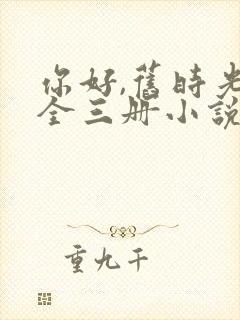 你好,舊時光
全三册小說
重九千